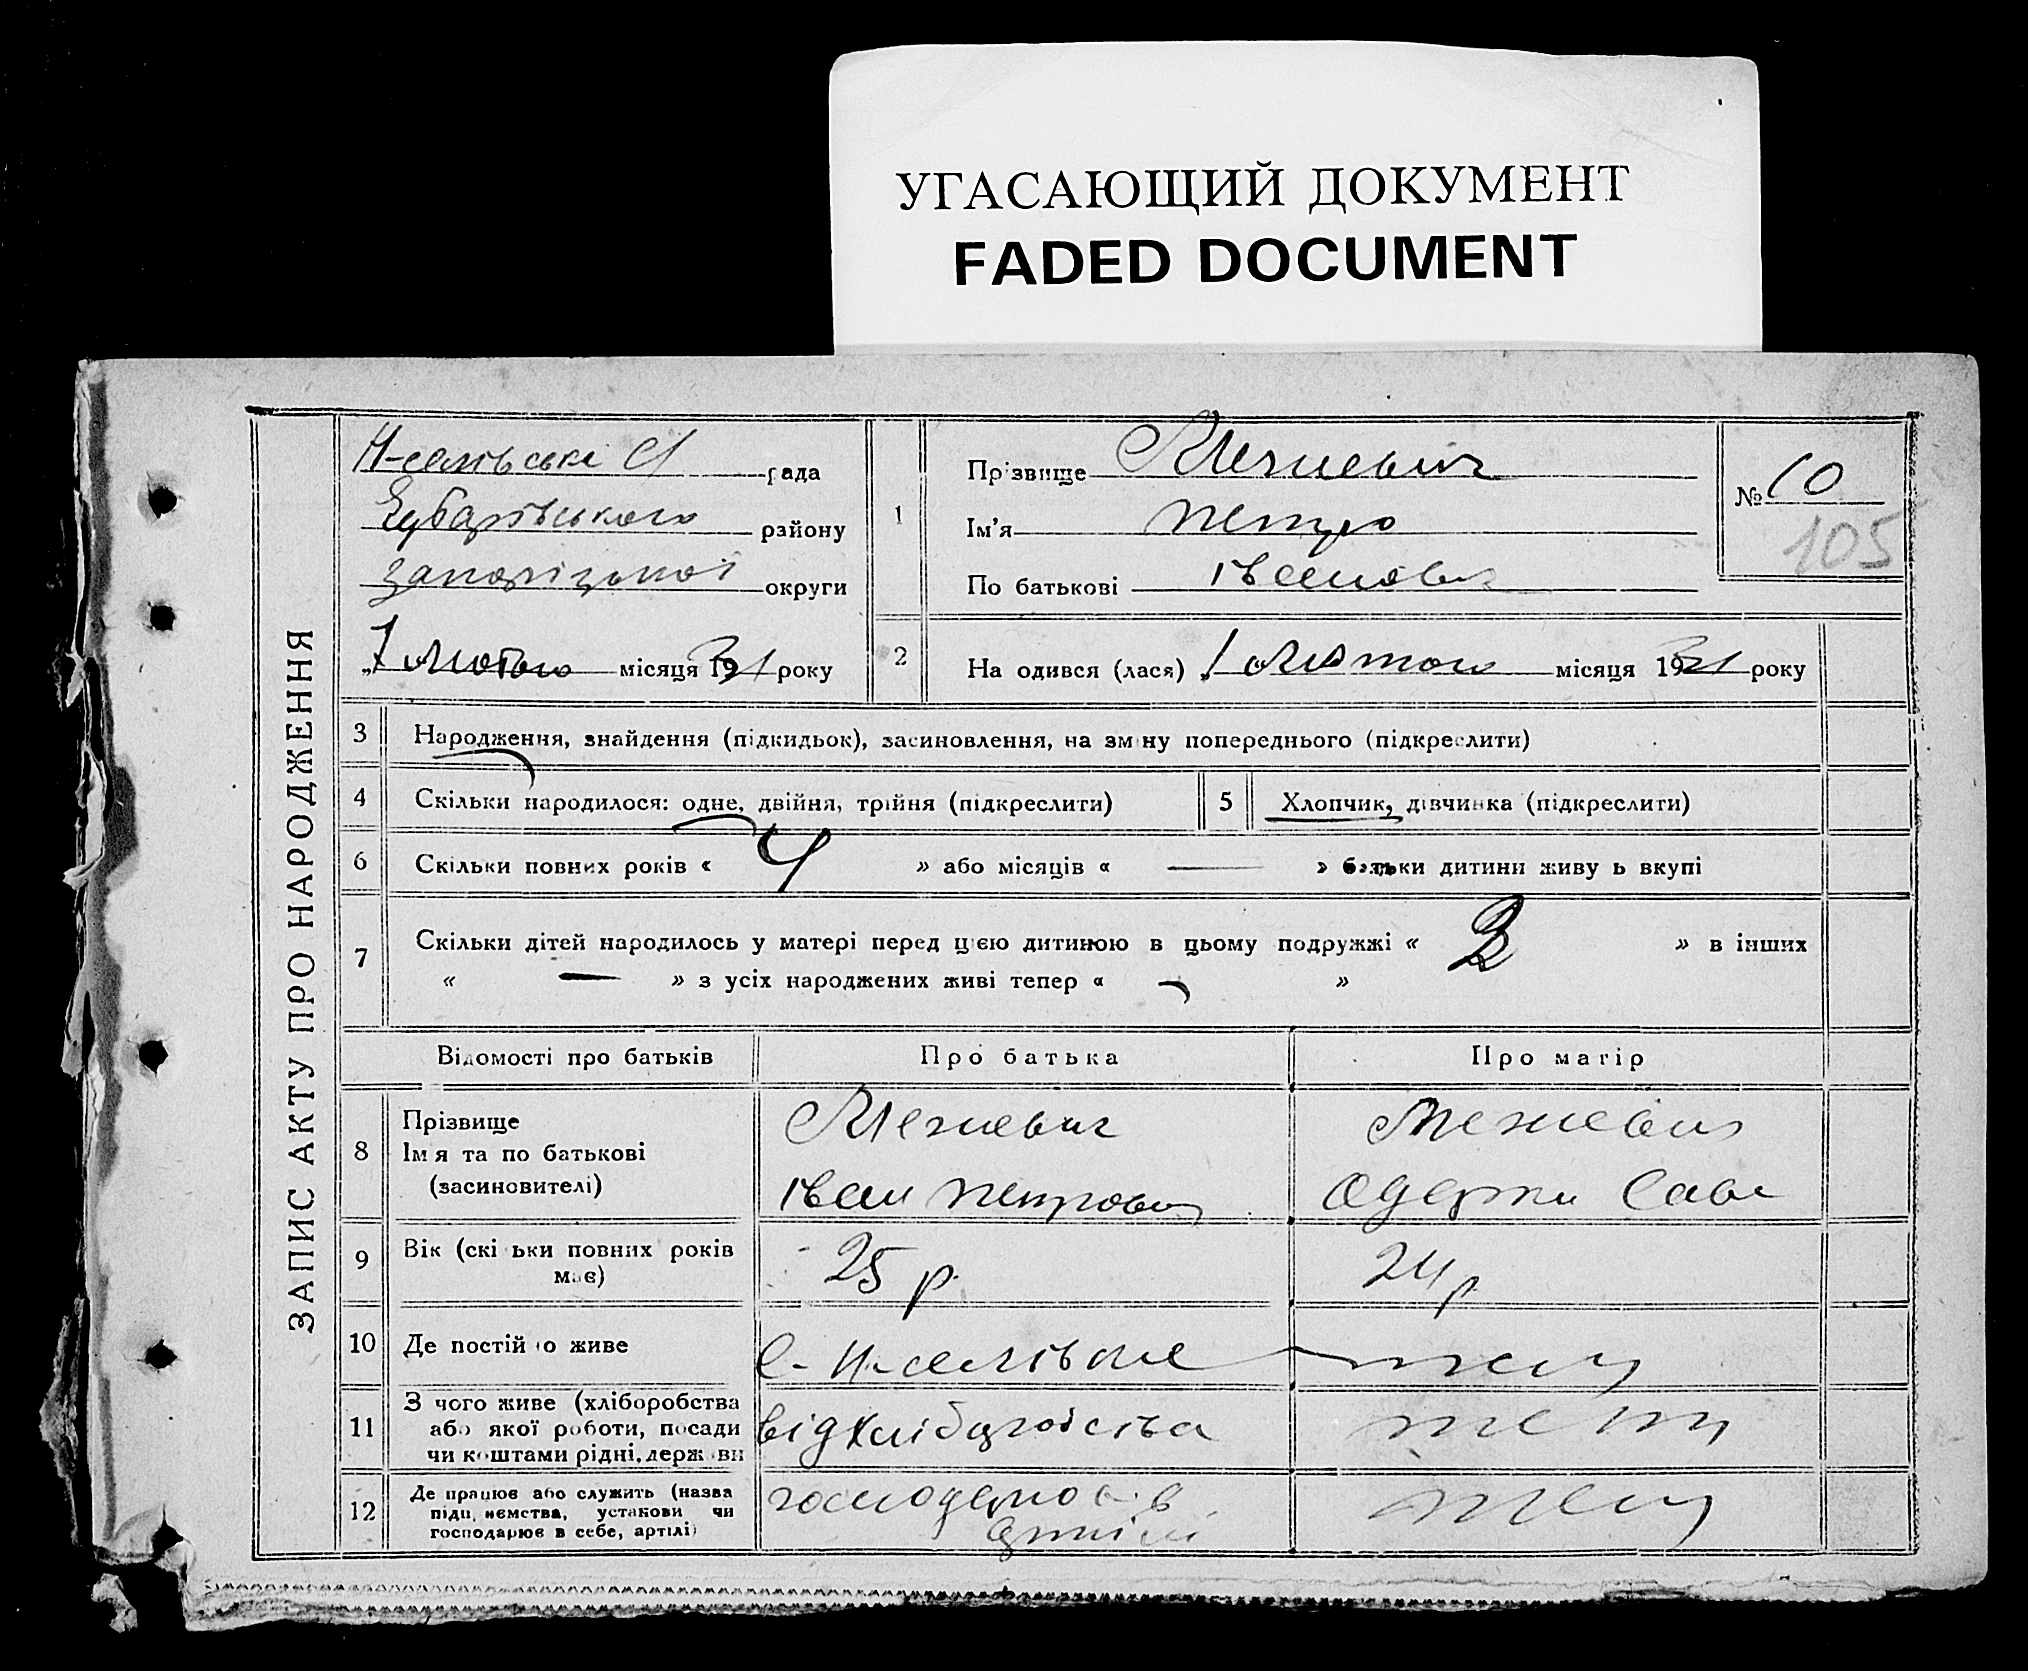 УГАСАЮЩИЙ ДОКУМЕНТ
FADED DOCUMENT
ЗАПИС АКТУ ПРО НАРОДЖЕННЯ
рада
району
запорізької округи
1 лютого місяця 1931 року
1
Прізвище Межевич
Ім'я Петро
По батькові Іванович
№ 10
105
2
На одився (лася) „1 лютого місяця 1931 року
3 Народження, знайдення (підкидьок), засиновлення, на зміну попереднього (підкреслити)
4 Скільки народилося: одне, двійня, трійня (підкреслити)
5 Хлопчик, дівчинка (підкреслити)
6 Скільки повних років « 4 » або місяців « — » батьки дитини живу ь вкупі
7 Скільки дітей народилось у матері перед цією дитиною в цьому подружжі « » в інших
« — » з усіх народжених живі тепер « - »
Відомості про батьків
Про батька
Про матір
8 Прізвище
Ім я та по батькові
(засиновителі)
Межевич
Іван Петрович
Межевич
Сав
9 Вік (скі ьки повних років
має)
25 р.
24 р
10 Де постій о живе
с.
11 З чого живе (хліборобства
або якої роботи, посади
чи коштами рідні, держ ви
від хліборобства
12 Де працює або служить (назва
підп, иємства, установи чи
господарює в себе, артілі)
в
артілі